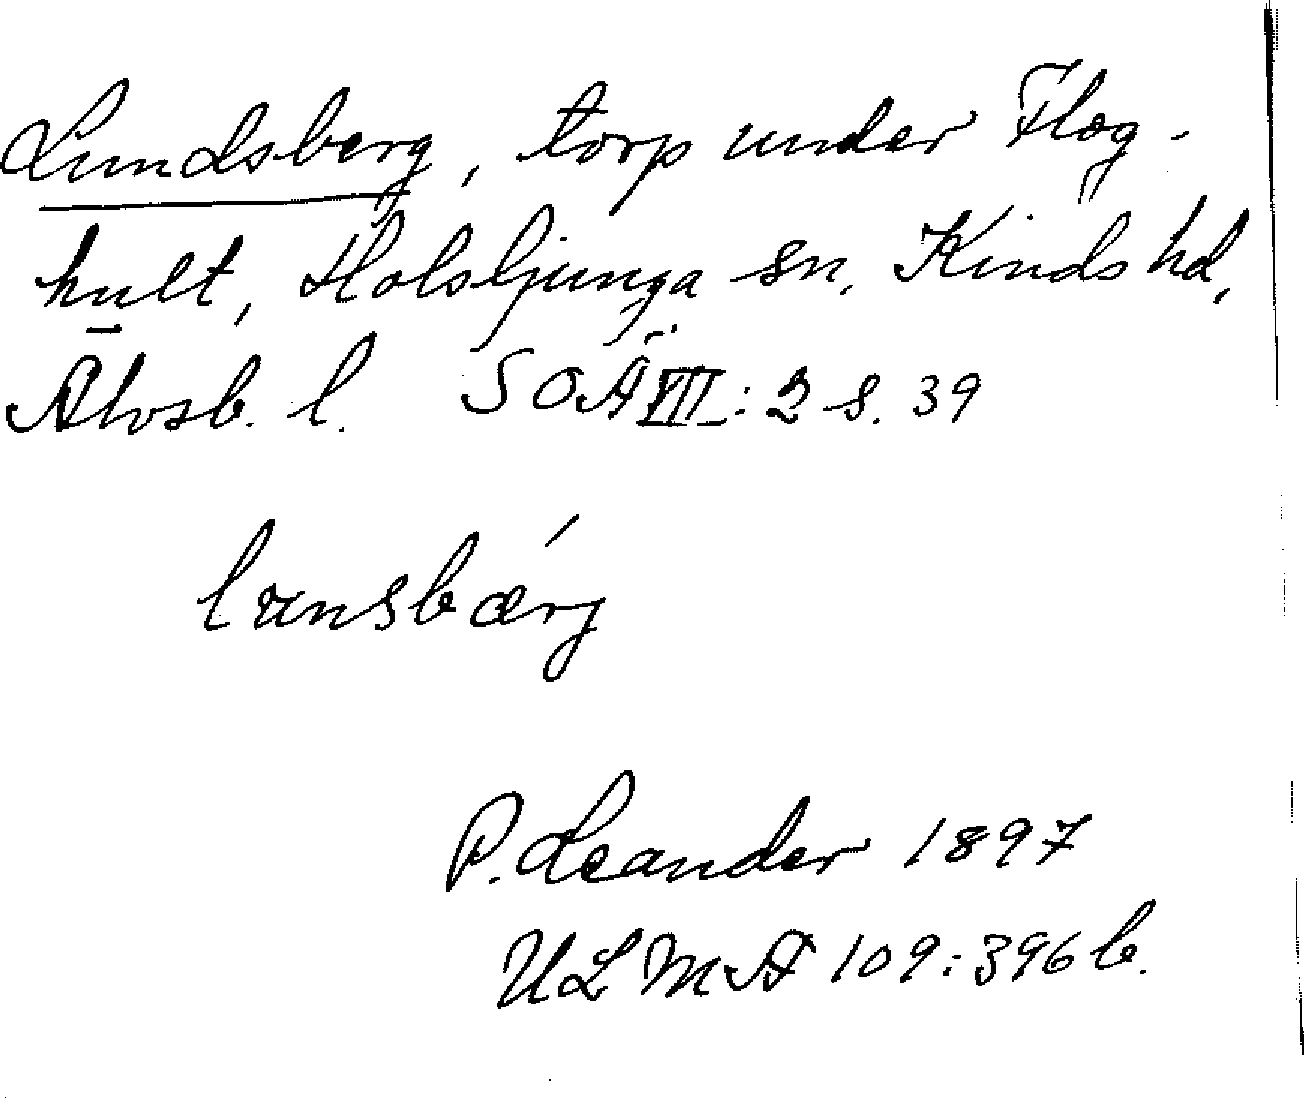 Lundsberg, torp under Flog-
hult, Holsljunga sn, Kinds hd,
Älvsb. l. SOÄ VII: 2 s. 39
lunsbærj
P. Leander 1897
ULMA 109:396 b.